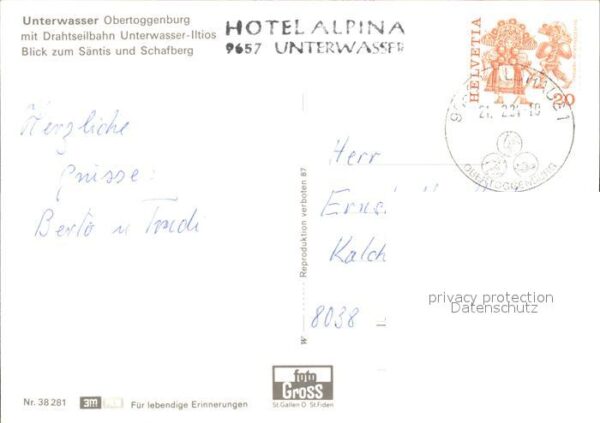 Unterwasser Obertoggenburg
mit Drahtseilbahn Unterwasser-Iltios
Blick zum Säntis und Schafberg
HOTEL ALPINA
9657 UNTERWASSER
HELVETIA
20
OBERTOGGENBURG
Herzliche
Grüsse:
Berto u Trudi
Herr
Kalch
8038
privacy protection
Datenschutz
Reproduktion verboten 87
W
foto
Gross
St.Gallen O. St.Fiden
Nr. 38 281
3M
Für lebendige Erinnerungen